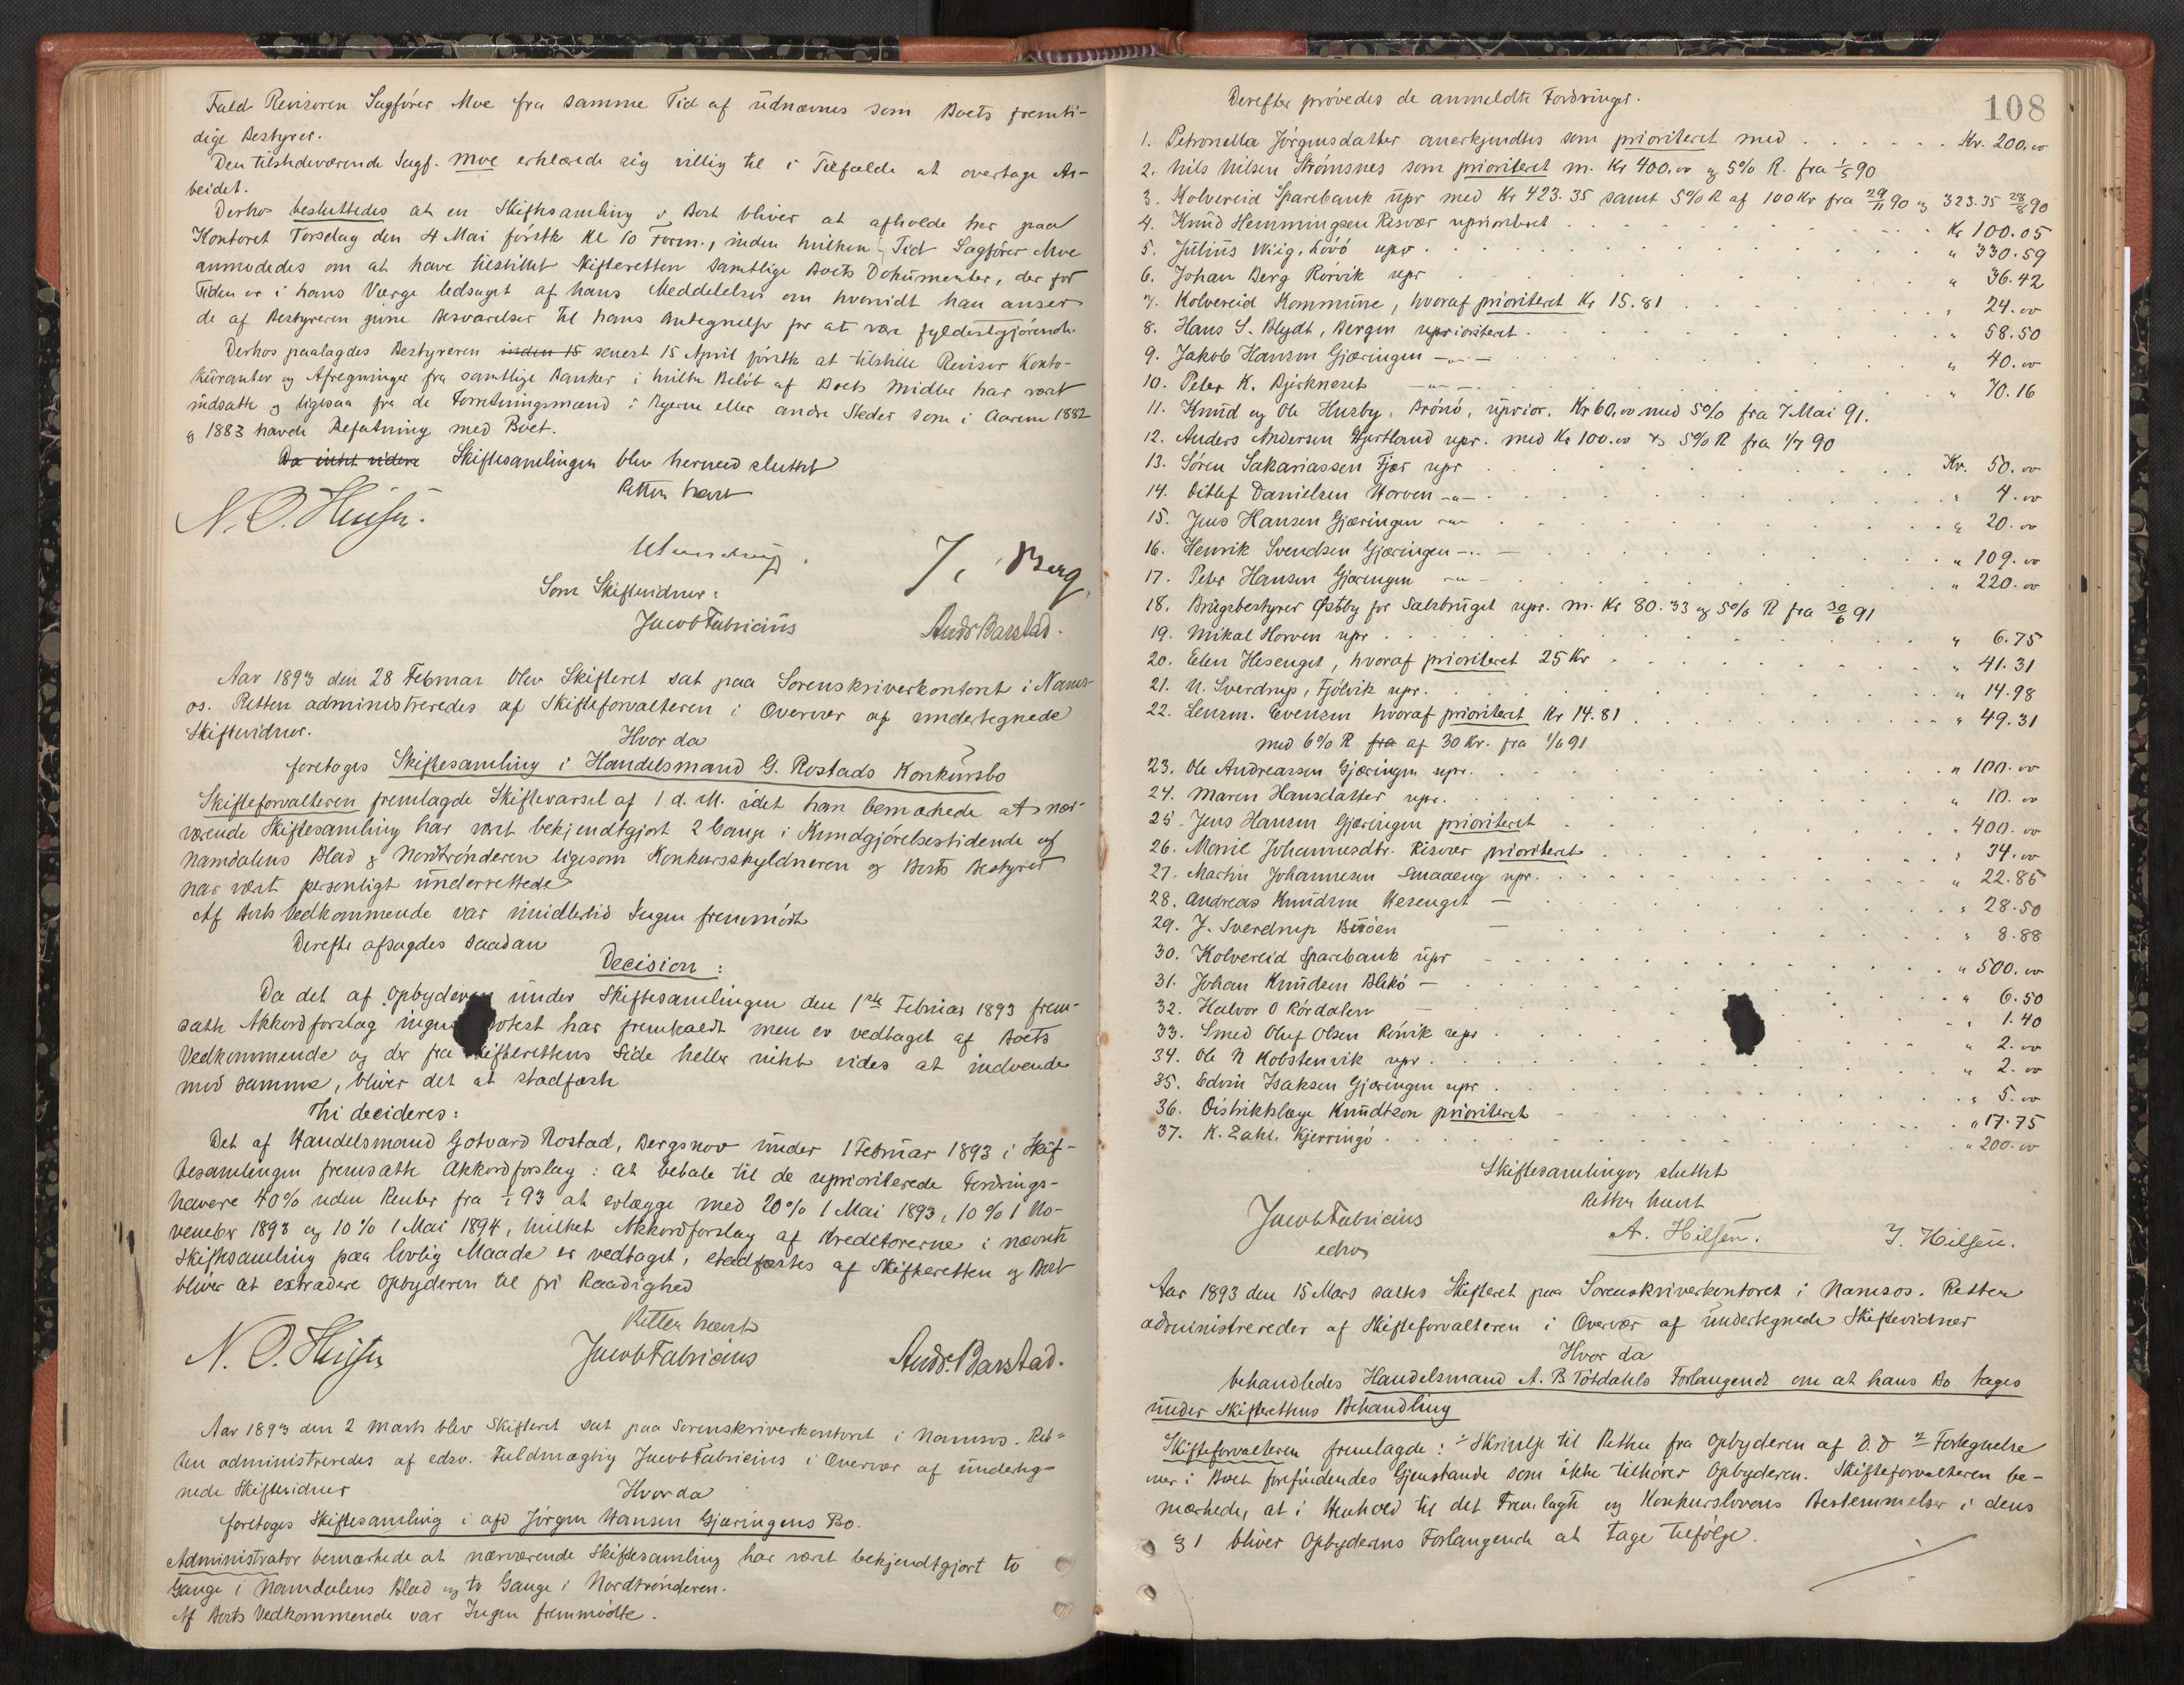 Fald Revisoren Sagfører Moe fra samme Tid af udnævnes som Boets fremti-
dige Bestyrer.
Den tilstedeværende Sagf. Moe erklærede sig villig til i Tilfælde at overtage Ar-
beidet.
Derhos besluttedes at en Skiftesamling i Boet bliver at afholde her paa
Kontoret Torsdag den 4 Mai førstk Kl 10 Form., inden hvilken Tid Sagfører Moe
anmodedes om at have tilstillet Skifteretten samtlige Boets Dokumenter, der for
Tiden er i hans Værge ledsaget af hans Meddelelser om hvorvidt han anser
de af Bestyreren givne Besvarelser til hans Antegnelser for at være fyldestgjørende.
Derhos paalagdes Bestyreren inden 15 senest 15 April førstk at tilstille Revisor Konto-
kuranter og Afregninger fra samtlige Banker i hvilke Beløb af Boets Midler har været
indsatte og ligesaa fra de Forretningsmænd i Byerne eller andre Steder som i Aarene 1882
og 1883 havde Befatning med Boet.
Da intet videre Skiftesamlingen blev hermed sluttet
Retten hævet
Som Skiftevidner:
J. Berg
Jacob Fabricius
Andr Barstad.
Aar 1893 den 28 Februar blev Skifteret sat paa Sorenskriverkontoret i Nams-
os. Retten administreredes af Skifteforvalteren i Overvær af undertegnede
Skiftevidner.
Hvor da
foretoges Skiftesamling i Handelsmand G. Rostads Konkursbo
Skifteforvalteren fremlagde Skiftevarsel af 1 d. M. idet han bemærkede at nær-
værende Skiftesamling har vært bekjendtgjort 2 Gange i Kundgjørelsestidende og
Namdalens Blad & Nordtrønderen ligesom Konkursskyldneren og Boets Bestyrer
har vært personligt underrettede
Af Boets Vedkommende var imidlertid Ingen fremmødt
Derefter afsagdes saadan
Decision:
Da det af Opbyderen under Skiftesamlingen den 1ste Februar 1893 frem-
satte Akkordforslag ingen Protest har fremkaldt men er vedtaget af Boets
Vedkommende og der fra Skifterettens Side heller intet vides at indvende
mod samme, bliver det at stadfæste
Thi decideres:
Det af Handelsmand Gotvard Rostad, Bergsnov under 1 Februar 1893 i Skif-
tesamlingen fremsatte Akkordforslag: at betale til de uprioriterede Fordrings-
havere 40% uden Renter fra 93 at erlægge med 20% 1 Mai 1893, 10% 1 No-
vember 1893 og 10% 1 Mai 1894, hvilket Akkordforslag af Kreditorerne i nævnte
Skiftesamling paa lovlig Maade er vedtaget, stadfæstes af Skifteretten og Boet
bliver at extradere Opbyderen til fri Raadighed
Retten hævet
Jacob Fabricius
Andr. Barstad.
Aar 1893 den 2 Marts blev Skifteret sat paa Sorenskriverkontoret i Namsos. Ret-
ten administreredes af edsv. Fuldmægtig Jacob Fabricius i Overvær af underteg-
nede Skiftevidner
Hvor da
foretoges Skiftesamling i afd Jørgen Hansen Gjæringens Bo.
Administrator bemærkede at nærværende Skiftesamling har vært bekjendtgjort to
Gange i Namdalens Blad og to Gange i Nordtrønderen.
Af Boets Vedkommende var Ingen fremmødte.
108
Derefter prøvedes de anmeldte Fordringer.
1. Petronella Jørgensdatter anerkjendtes som prioriteret med . . . Kr. 200,00
2. Nils Nilsen Strømsnes som prioriteret m. Kr 400,00 og 5% R. fra 1/5 90
3. Kolvereid Sparebank upr med Kr 423.35 samt 5% R af 100 Kr fra 29/11 90 og 323.35 28/8 90
4. Knud Hemmingsen Risvær uprioriteret . . . Kr 100.05
5. Julius Wiig, Løvø upr . . . " 330.59
6. Johan Berg Rørvik upr . . . " 36.42
7. Kolvereid Kommune, hvoraf prioriteret Kr 15.81 . . . " 24.00
8. Hans S. Blydt, Bergen uprioriteret . . . " 58.50
9. Jakob Hansen Gjæringen -"- . . . " 40.00
10. Peter K. Bjerkneset -"- . . . " 70.16
11. Knud og Ole Husby, Brønø, uprior. Kr 60,00 med 5% fra 7 Mai 91.
12. Anders Andersen Hjertland upr. med Kr 100.00 & 5% R fra 1/7 90
13. Søren Sakariassen Fjær upr . . . Kr. 50.00
14. Ditlef Danielsen Horven -"- . . . " 4.00
15. Jens Hansen Gjæringen -"- . . . " 20.00
16. Henrik Svendsen Gjæringen -"- . . . " 109.00
17. Peter Hansen Gjæringen -"- . . . " 220.00
18. Brugsbestyrer Østby for Salsbruget upr. m. Kr 80.33 og 5% R fra 30/6 91
19. Mikal Horven upr . . . " 6.75
20. Elen Hesenget, hvoraf prioriteret 25 Kr . . . " 41.31
21. N. Sverdrup, Fjølvik upr. . . . " 14.98
22. Lensm. Evensen hvoraf prioriteret Kr 14.81 . . . " 49.31
med 6% R fra af 30 Kr. fra 1/6 91
23. Ole Andreassen Gjæringen upr. . . . " 100.00
24. Maren Hansdatter upr. . . . " 10.00
25. Jens Hansen Gjæringen prioriteret . . . " 400.00
26. Marie Johannesdtr. Risvær prioriteret . . . " 34.00
27. Martin Johannesen Smaaeng upr. . . . " 22.85
28. Andreas Knudsen Hesenget — . . . " 28.50
29. J. Sverdrup Buøen — . . . " 8.88
30. Kolvereid Sparebank upr . . . " 500.00
31. Johan Knudsen Blikø — . . . " 6.50
32. Halvor O Rørdalen — . . . " 1.40
33. Smed Oluf Olsen Rørvik upr . . . " 2.00
34. Ole N Kobstenvik upr . . . " 2.00
35. Edvin Isaksen Gjæringen upr . . . " 5.00
36. Distriktslæge Knudtzon prioriteret . . . " 17.75
37. K. Zahl, Kjerringø . . . " 200.00
Skiftesamlingen sluttet
Retten hævet
Jacob Fabricius
edsv
A. Hilsen.
J. Hilsen.
Aar 1893 den 15 Mars sattes Skifteret paa Sorenskriverkontoret i Namsos. Retten
administreredes af Skifteforvalteren i Overvær af undertegnede Skiftevidner
Hvor da
behandledes Handelsmand A. B. Tøtdahls Forlangende om at hans Bo tages
under Skifterettens Behandling
Skifteforvalteren fremlagde: 1 Skrivelse til Retten fra Opbyderen af D.D 2 Fortegnelse
over i Boet forefindendes Gjenstande som ikke tilhører Opbyderen. Skifteforvalteren be-
mærkede, at i Henhold til det Fremlagte og Konkurslovens Bestemmelser i dens
§ 1 bliver Opbyderens Forlangende at tage tilfølge.